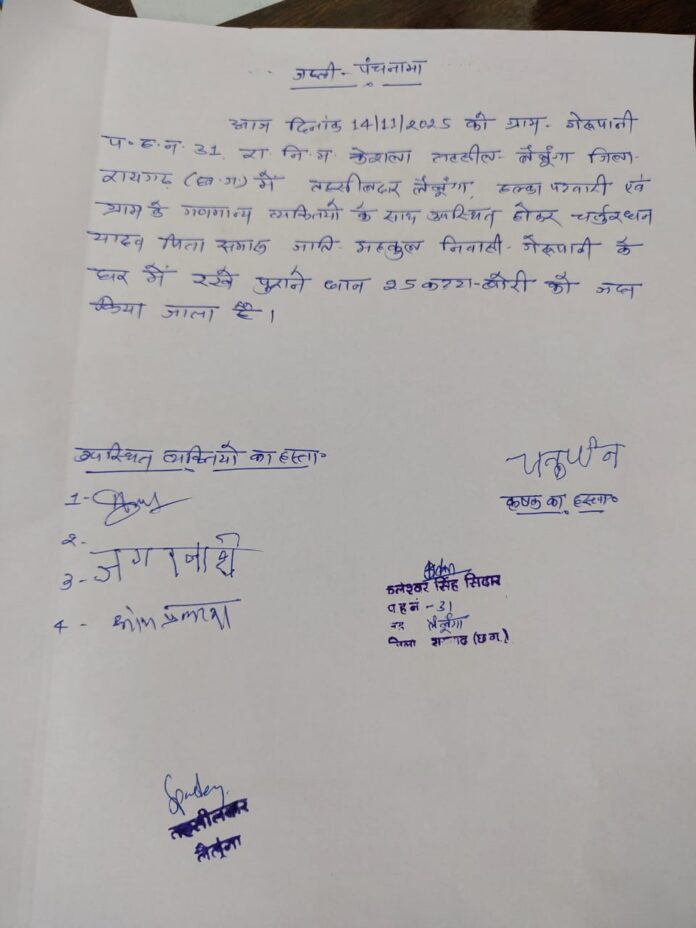 जप्ती - पंचनामा
आज दिनांक 14/11/2025 को ग्राम - गेरूपानी
प.ह.न. 31, रा.नि.म. केशला तहसील - लैलूंगा जिला -
रायगढ़ (छ.ग.) में तहसीलदार लैलूंगा, हल्का पटवारी एवं
ग्राम के गणमान्य व्यक्तियों के साथ उपस्थित होकर
यादव पिता जाति - महकुल निवासी - गेरूपानी के
घर में रखे पुराने धान 25 कट्टा - बोरी को जप्त
किया जाता है।
उपस्थित व्यक्तियों का हस्ता॰
1-
2-
3-
4 -
कृषक का हस्ता॰
सिंह सिदार
प ह नं - 31
लैलूंगा
जिला (छ.ग.)
तहसीलदार
लैलूंगा